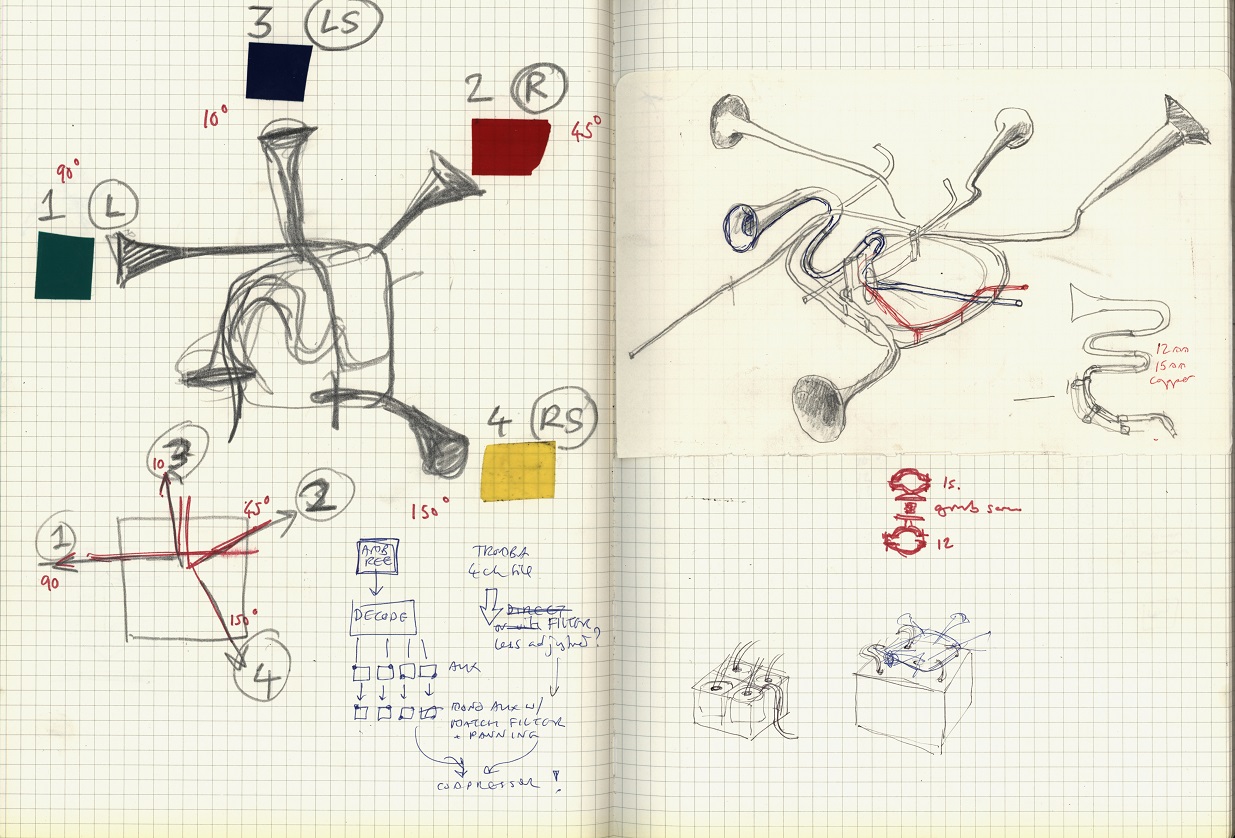 3 LS
2 R
10°
45°
90°
1 L
4 RS
150°
3
10
2
45°
1
90
150°
4
AMB
REC
DECODE
AUX
MONO AUX W/
MATCH FILTER
+ PANNING
COMPRESSOR !
TROMBA
4ch file
DIRECT
or with FILTER
less adjusted?
12mm
15mm
copper
15.
grub screw
12